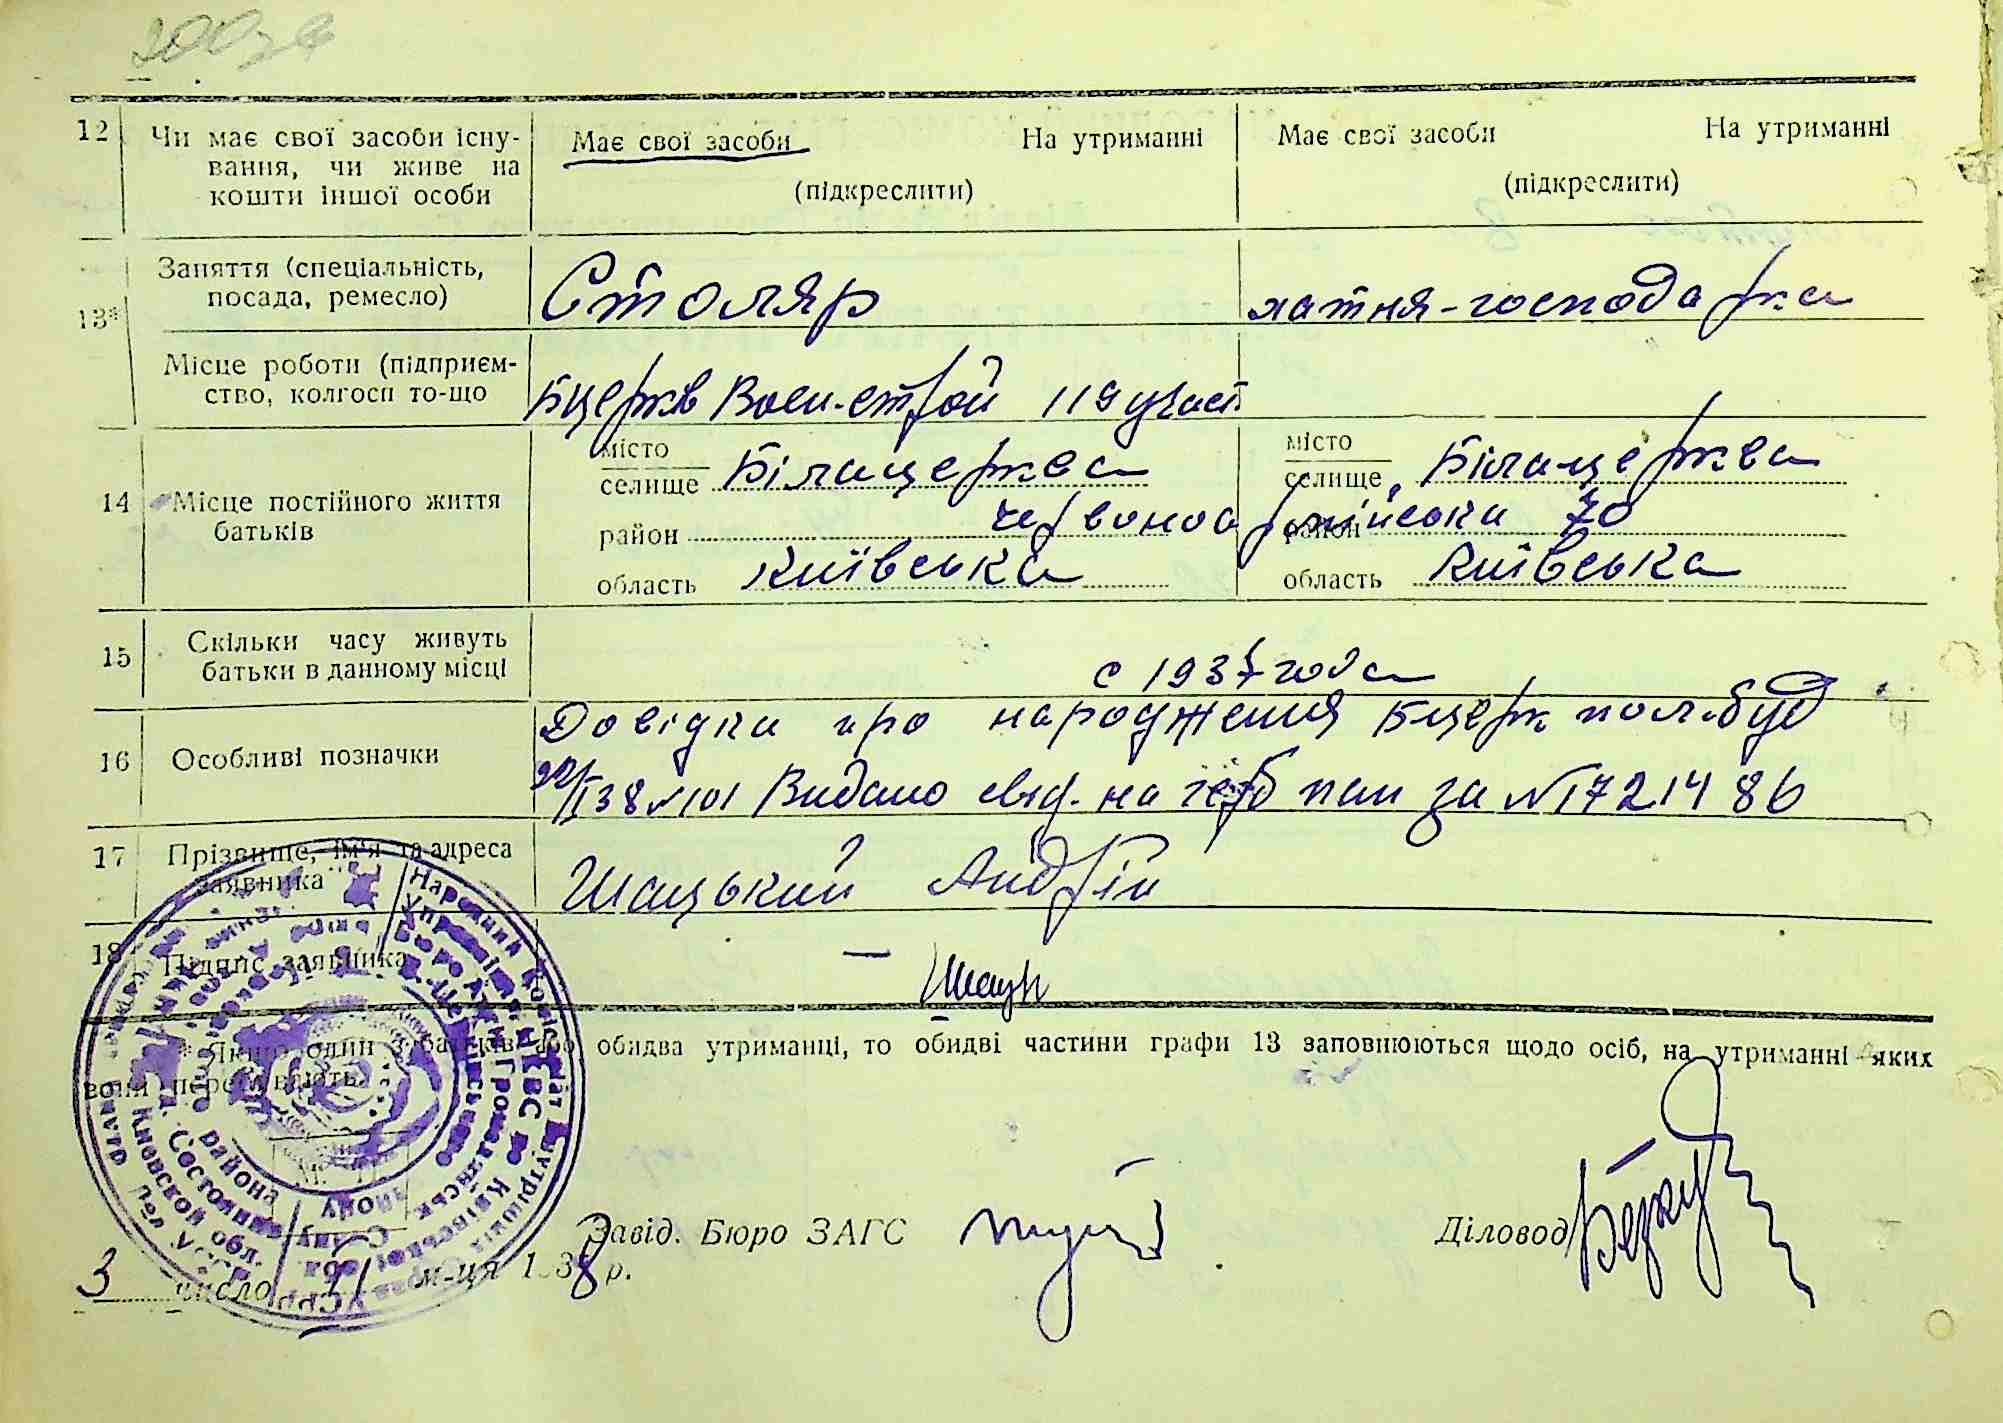 12 Чи має свої засоби існу-
вання, чи живе на
кошти іншої особи
Має свої засоби На утриманні
(підкреслити)
Має свої засоби На утриманні
(підкреслити)
13* Заняття (спеціальність,
посада, ремесло)
Столяр
хатня-господарка
Місце роботи (підприєм-
ство, колгосп то-що
Бцерків Воен-строй 119 участ
14 Місце постійного життя
батьків
місто
селище Білацерква
район
область Київська
місто
селище Білацерква
район
область Київська
Червоноармійська 70
15 Скільки часу живуть
батьки в данному місці
с 1937 года
16 Особливі позначки
Довідка про народження Бцерк пол.буд
38 №101 Видано свід. на за №1721486
17 Прізвище, ім'я та адреса
заявника
Шацький Андрій
18 Підпис заявника
— Шацк
* Якщо один з батьків або обидва утриманці, то обидві частини графи 13 заповнюються щодо осіб, на утриманні яких
вони перебувають.
Народний Комісаріат Внутрішніх
Управління НКВС по Київській
Бюро Актів Громадянськ
района
Киевской обл.
М. П.
Завід. Бюро ЗАГС
Діловод
3 число II м-ця 1938 р.